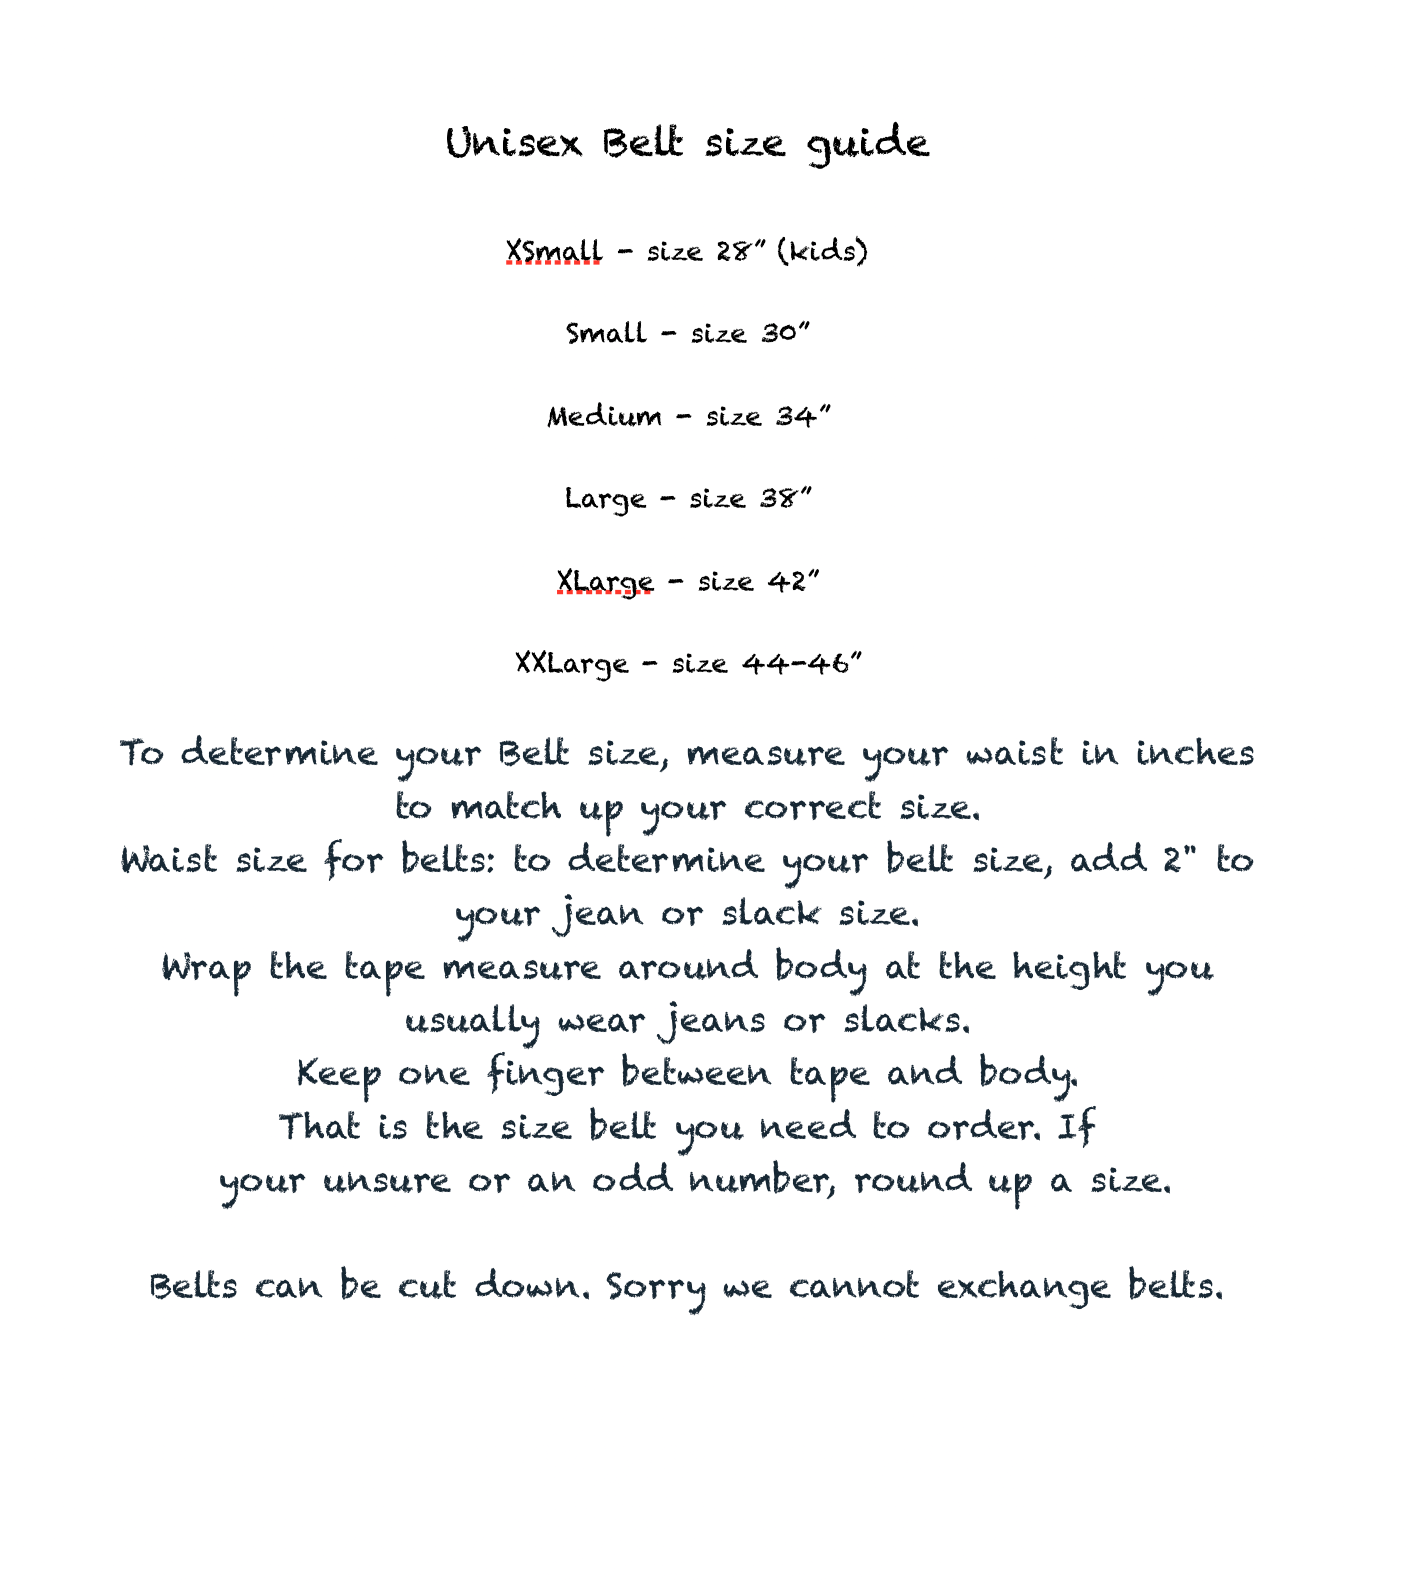 Unisex Belt size guide
XSmall - size 28” (kids)
Small - size 30”
Medium - size 34”
Large - size 38”
XLarge - size 42”
XXLarge - size 44-46”
To determine your Belt size, measure your waist in inches
to match up your correct size.
Waist size for belts: to determine your belt size, add 2" to
your jean or slack size.
Wrap the tape measure around body at the height you
usually wear jeans or slacks.
Keep one finger between tape and body.
That is the size belt you need to order. If
your unsure or an odd number, round up a size.
Belts can be cut down. Sorry we cannot exchange belts.